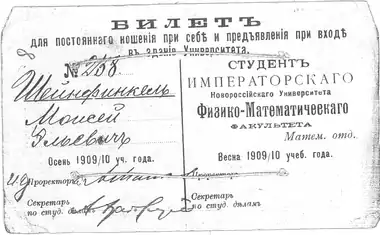 БИЛЕТЪ
для постояннаго ношенія при себѣ и предъявленія при входѣ
въ зданіе Университета.
№ 258
Шейнфинкель
Моисей
Эльевичъ
Осень 1909/10 уч. года.
Проректоръ
Секретарь
по студ. дѣламъ
СТУДЕНТЪ
ИМПЕРАТОРСКАГО
Новороссійскаго Университета
Физико-Математическаго
ФАКУЛЬТЕТА
Матем. отд.
Весна 1909/10 учеб. года.
Проректоръ
Секретарь
по студ. дѣламъ